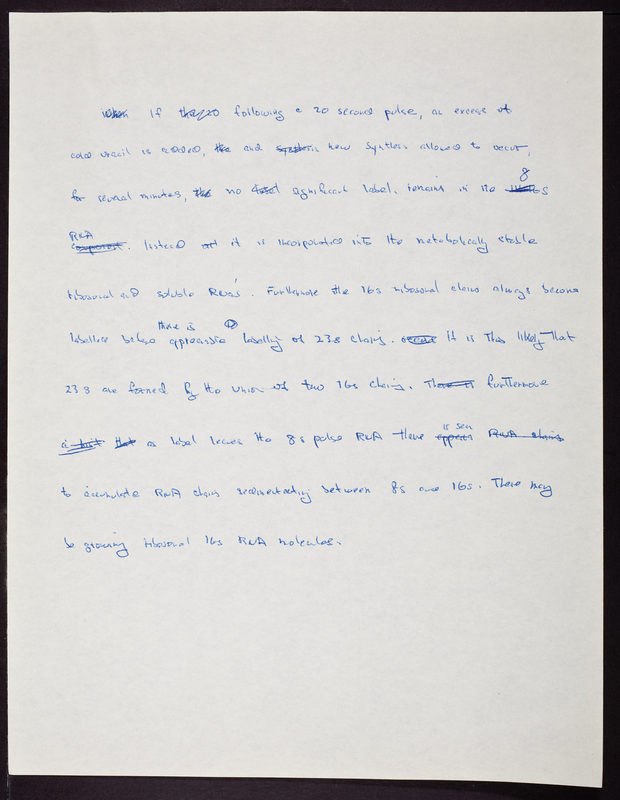 If following a 20 second pulse, an excess of
cold uracil is added, and new synthesis allowed to occur,
for several minutes, no significant label remains in the 8s
RNA. Instead it is incorporated into the metabolically stable
ribosomal and soluble RNA's. Furthermore the 16s ribosomal chains always become
labelled before there is appreciable labelling of 23s chains. It is thus likely that
23s are formed by the union of two 16s chains. Furthermore
as label leaves the 8s pulse RNA there is seen
to accumulate RNA chains sedimentating between 8s and 16s. These may
be growing ribosomal 16s RNA molecules.